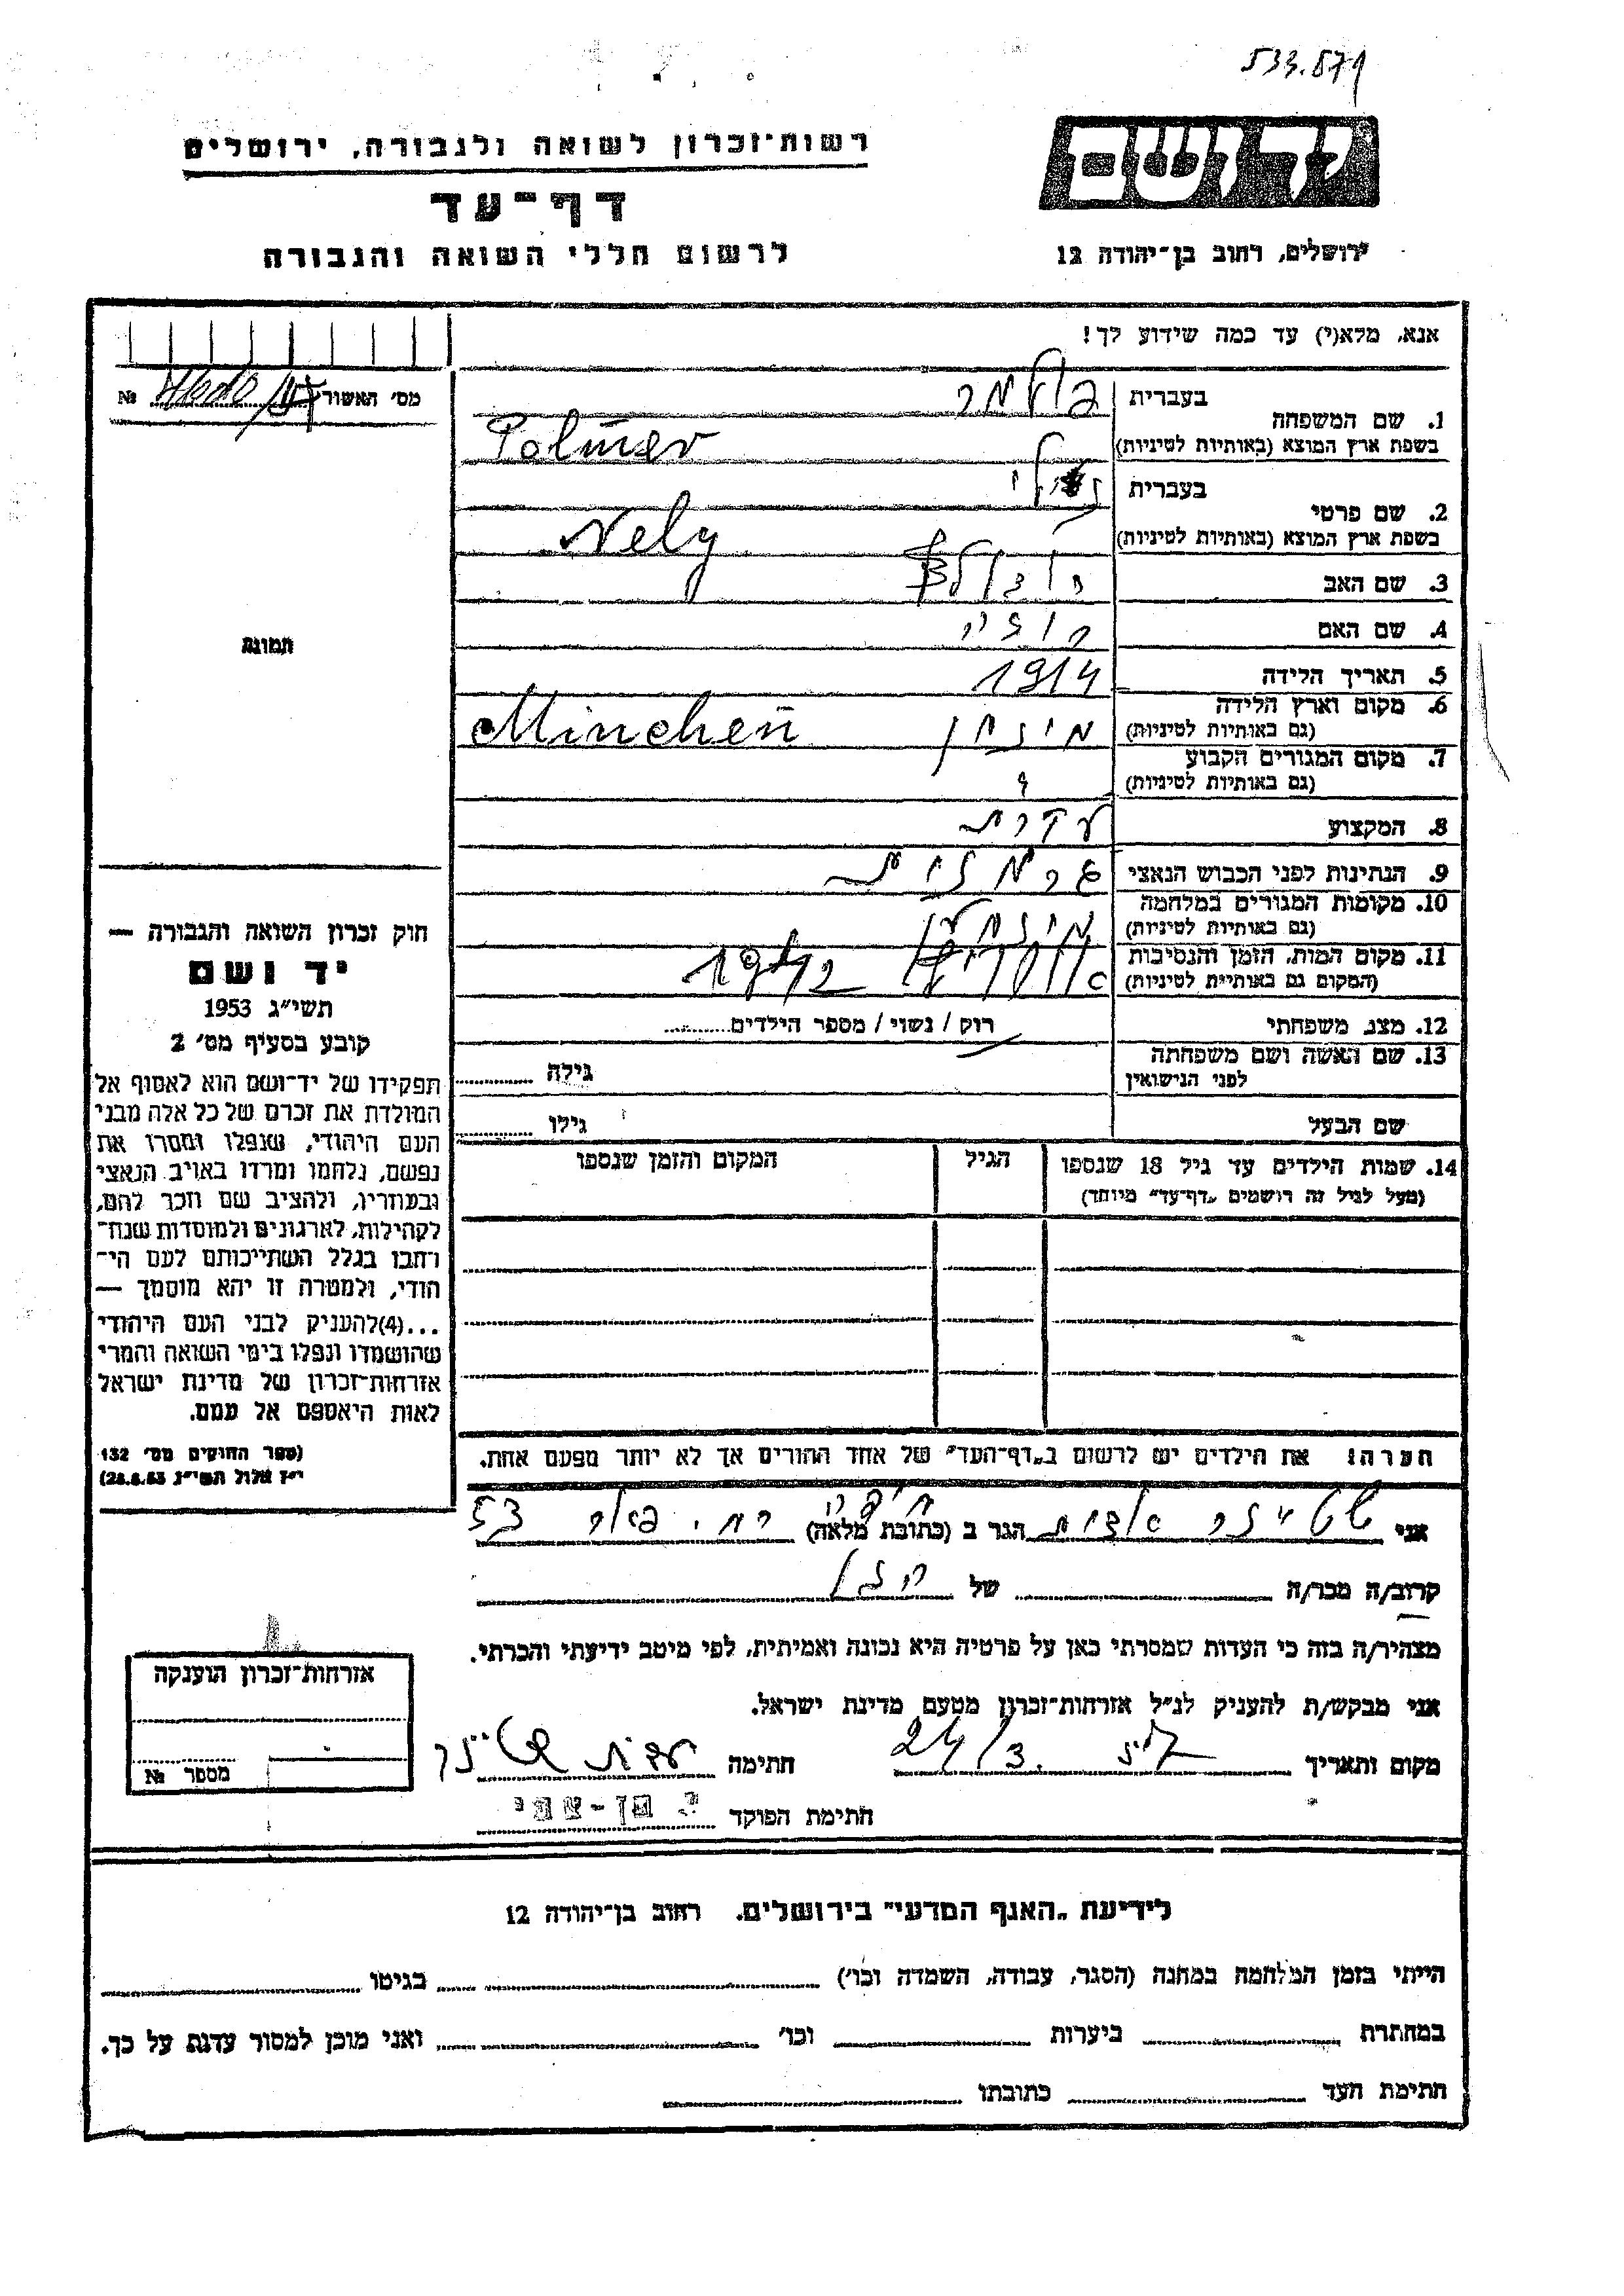 533.579
רשות־זכרון לשואה ולגבורה, ירושלים
דף־עד
לרשום חללי השואה והגבורה
ירושלים, רחוב בן־יהודה 12
אנא, מלא(י) עד כמה שידוע לך!
מס׳ האשור № 
1. שם המשפחה
בעברית פולמר
בשפת ארץ המוצא (באותיות לטיניות) Polmer
2. שם פרטי
בעברית
בשפת ארץ המוצא (באותיות לטיניות) Nely
3. שם האב
4. שם האם רוזה
5. תאריך הלידה 1914
6. מקום וארץ הלידה
(גם באותיות לטיניות) מינכן Minchen
7. מקום המגורים הקבוע
(גם באותיות לטיניות) ?
8. המקצוע עקרת
9. הנתינות לפני הכבוש הנאצי גרמנית
10. מקומות המגורים במלחמה
(גם באותיות לטיניות)
11. מקום המות, הזמן והנסיבות
(המקום גם באותיות לטיניות) 1942
12. מצב משפחתי רוק / נשוי / מספר הילדים
13. שם האשה ושם משפחתה
לפני הנישואין גילה
שם הבעל גילו
14. שמות הילדים עד גיל 18 שנספו
(מעל לגיל זה רושמים „דף־עד״ מיוחד)
הגיל
המקום והזמן שנספו
הערה! את הילדים יש לרשום ב„דף־העד״ של אחד ההורים אך לא יותר מפעם אחת.
תמונה
חוק זכרון השואה והגבורה —
יד ושם
תשי״ג 1953
קובע בסעיף מס׳ 2
תפקידו של יד־ושם הוא לאסוף אל
המולדת את זכרם של כל אלה מבני
העם היהודי, שנפלו ומסרו את
נפשם, נלחמו ומרדו באויב הנאצי
ובעוזריו, ולהציב שם וזכר להם,
לקהילות, לארגונים ולמוסדות שנח־
רחבו בגלל השתייכותם לעם הי־
הודי, ולמטרה זו יהא מוסמך —
...(4)להעניק לבני העם היהודי
שהושמדו ונפלו בימי השואה והמרי
אזרחות־זכרון של מדינת ישראל
לאות היאספם אל עמם.
(ספר החוקים מס׳ 132
י״ז אלול תשי״ג 28.8.53)
אני שטיינר הגר ב (כתובת מלאה) חיפה רח׳
קרוב/ה מכר/ה של
מצהיר/ה בזה כי העדות שמסרתי כאן על פרטיה היא נכונה ואמיתית, לפי מיטב ידיעתי והכרתי.
אני מבקש/ת להעניק לנ״ל אזרחות־זכרון מטעם מדינת ישראל.
מקום ותאריך 24/3. חתימה
חתימת הפוקד
אזרחות־זכרון הוענקה
מספר №
לידיעת „האגף המדעי״ בירושלים, רחוב בן־יהודה 12
הייתי בזמן המלחמה במחנה (הסגר, עבודה, השמדה וכו׳) בגיטו
במחתרת ביערות וכו׳ ואני מוכן למסור עדות על כך.
חתימת העד כתובתו